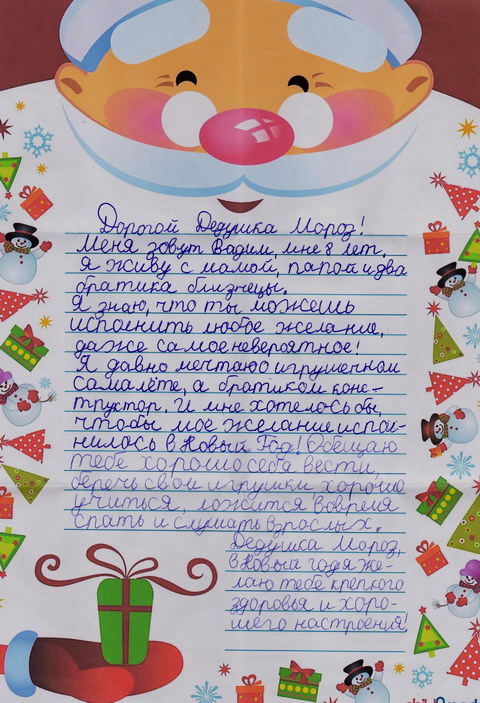 Дорогой Дедушка Мороз!
Меня зовут Вадим, мне 8 лет.
Я живу с мамой, папой и два
братика близнецы.
Я знаю, что ты можешь
исполнить любое желание,
даже самое невероятное!
Я давно мечтаю о игрушечном
самалёте, а братиком конс-
трукtор. И мне хотелось бы,
чтобы мое желание испол-
нилось в Новый Год! Обещаю
тебе хорошо себя вести,
беречь свои игрушки хорошо
учиться, ложится вовремя
спать и слушать взрослых.
Дедушка Мороз,
в Новый год я же-
лаю тебе крепкого
здоровья и хоро-
шего настроения!